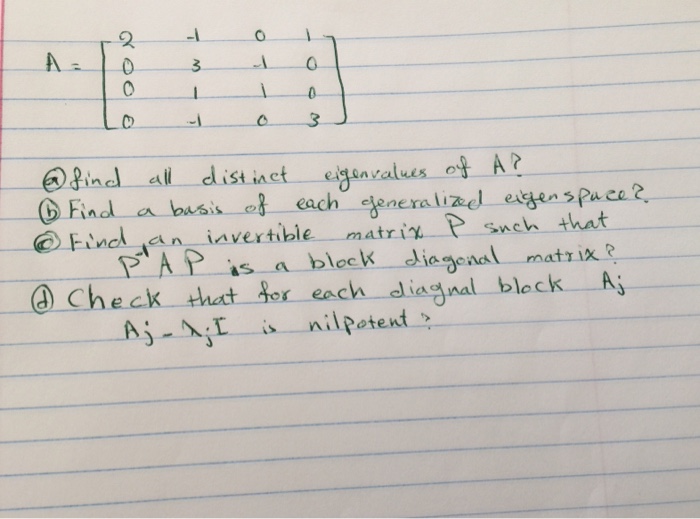 A = [ 2 -1 0 1
0 3 -1 0
0 1 1 0
0 -1 0 3 ]
ⓐ find all distinct eigenvalues of A?
ⓑ Find a basis of each generalized eigenspace?
ⓒ Find an invertible matrix P such that
P⁻¹AP is a block diagonal matrix?
ⓓ Check that for each diagnal block Aj
Aj - λjI is nilpotent?